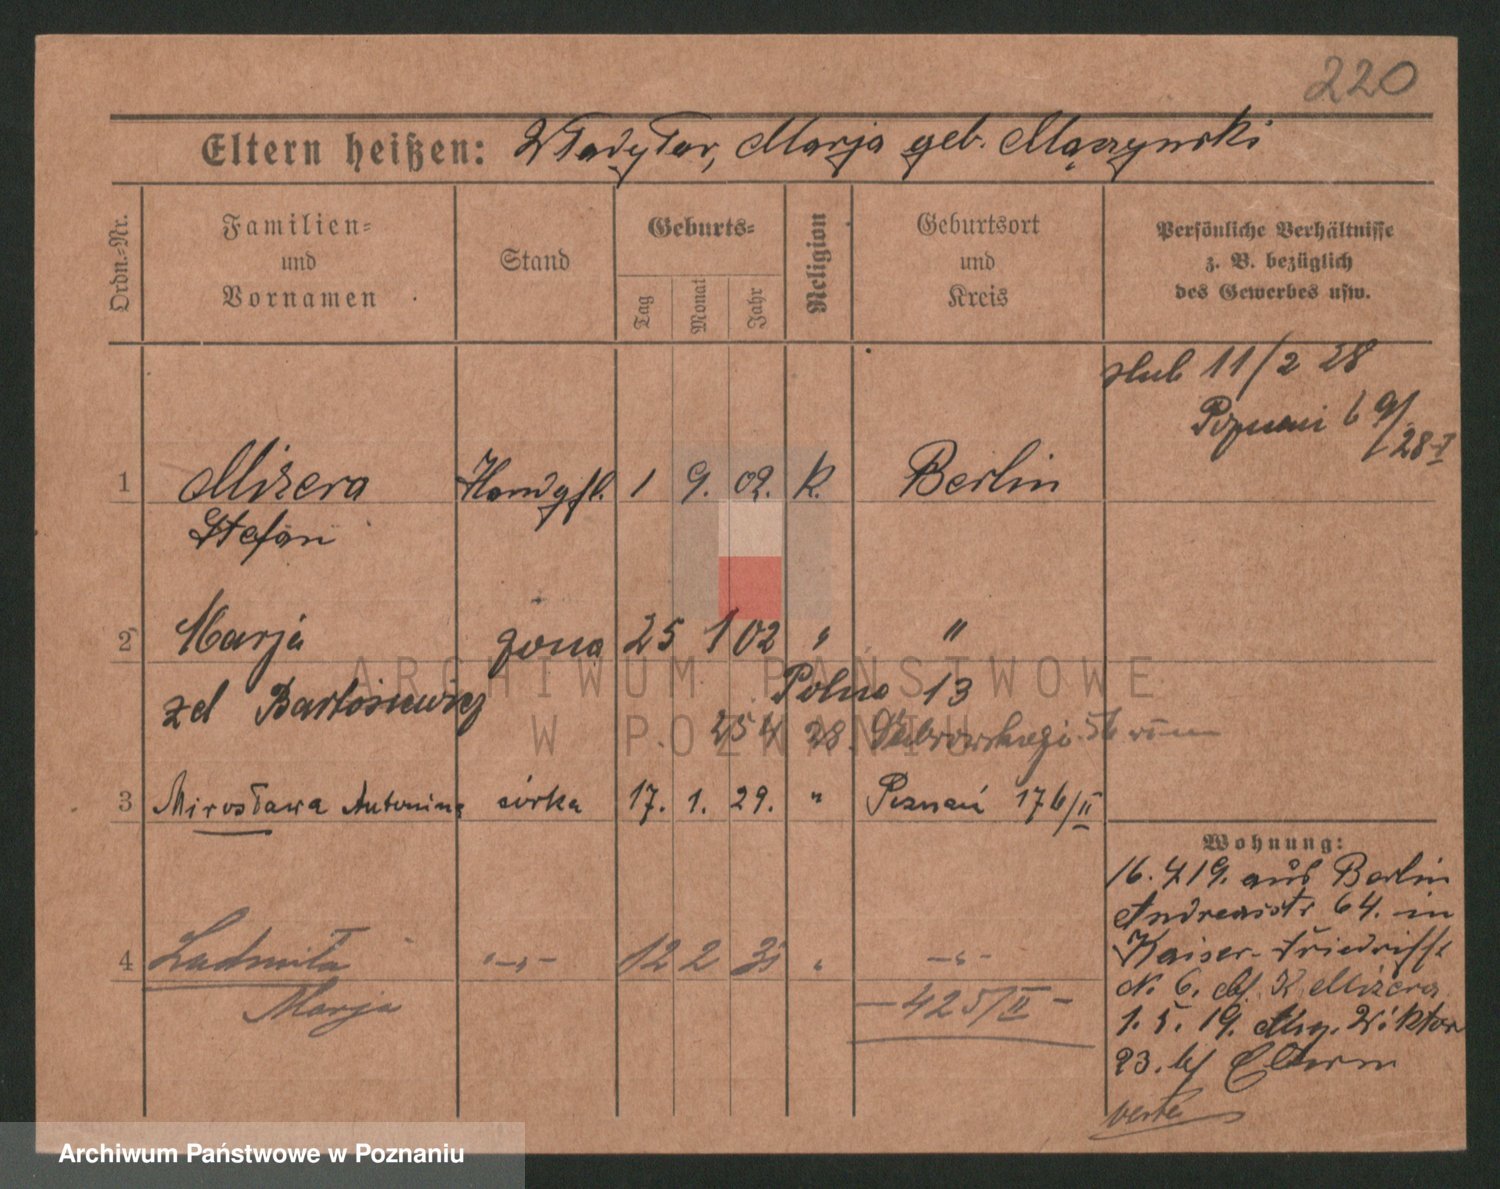 220
Eltern heißen: Władysław, Marja geb. Mączynski
Ordn.-Nr.
Familien-
und
Vornamen
Stand
Geburts-
Tag
Monat
Jahr
Religion
Geburtsort
und
Kreis
Persönliche Verhältnisse
z. B. bezüglich
des Gewerbes usw.
slub 11/2 28
Poznań 69/
28 I
1 Mizera Handgf. 1 9. 02. K. Berlin
Stefan
2 Marja żona 25 1 02 " "
zd Bartosiewicz
Polna 13
25 4 28. Dąbrowskiego 56
3 Mirosława Antonina córka 17. 1. 29. " Poznań 176/II
4 Ludmiła "-"- 12 2 31 " -"-
Marja
- 425/II -
Wohnung:
16. 4 19. aus Berlin
Andreasstr 64. in
Kaiser-Friedrichst
N. 6. bf. K Mizera
1. 5. 19. Mrg. Wiktor
23. bf Eltern
verte
ARCHIWUM PAŃSTWOWE
W POZNANIU
Archiwum Państwowe w Poznaniu